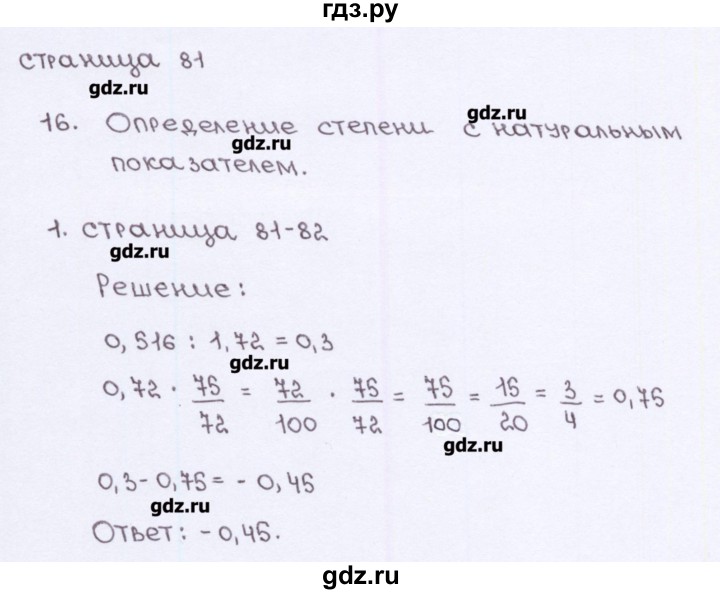 гдз.ру
страница 81
gdz.ru
gdz.ru
16. Определение степени с натуральным
gdz.ru
показателем.
1. страница 81-82
gdz.ru
Решение:
0,516 : 1,72 = 0,3
gdz.ru
0,72 · 75/72 = 72/100 · 75/72 = 75/100 = 15/20 = 3/4 = 0,75
gdz.ru
0,3 - 0,75 = - 0,45
gdz.ru
Ответ: - 0,45.
gdz.ru